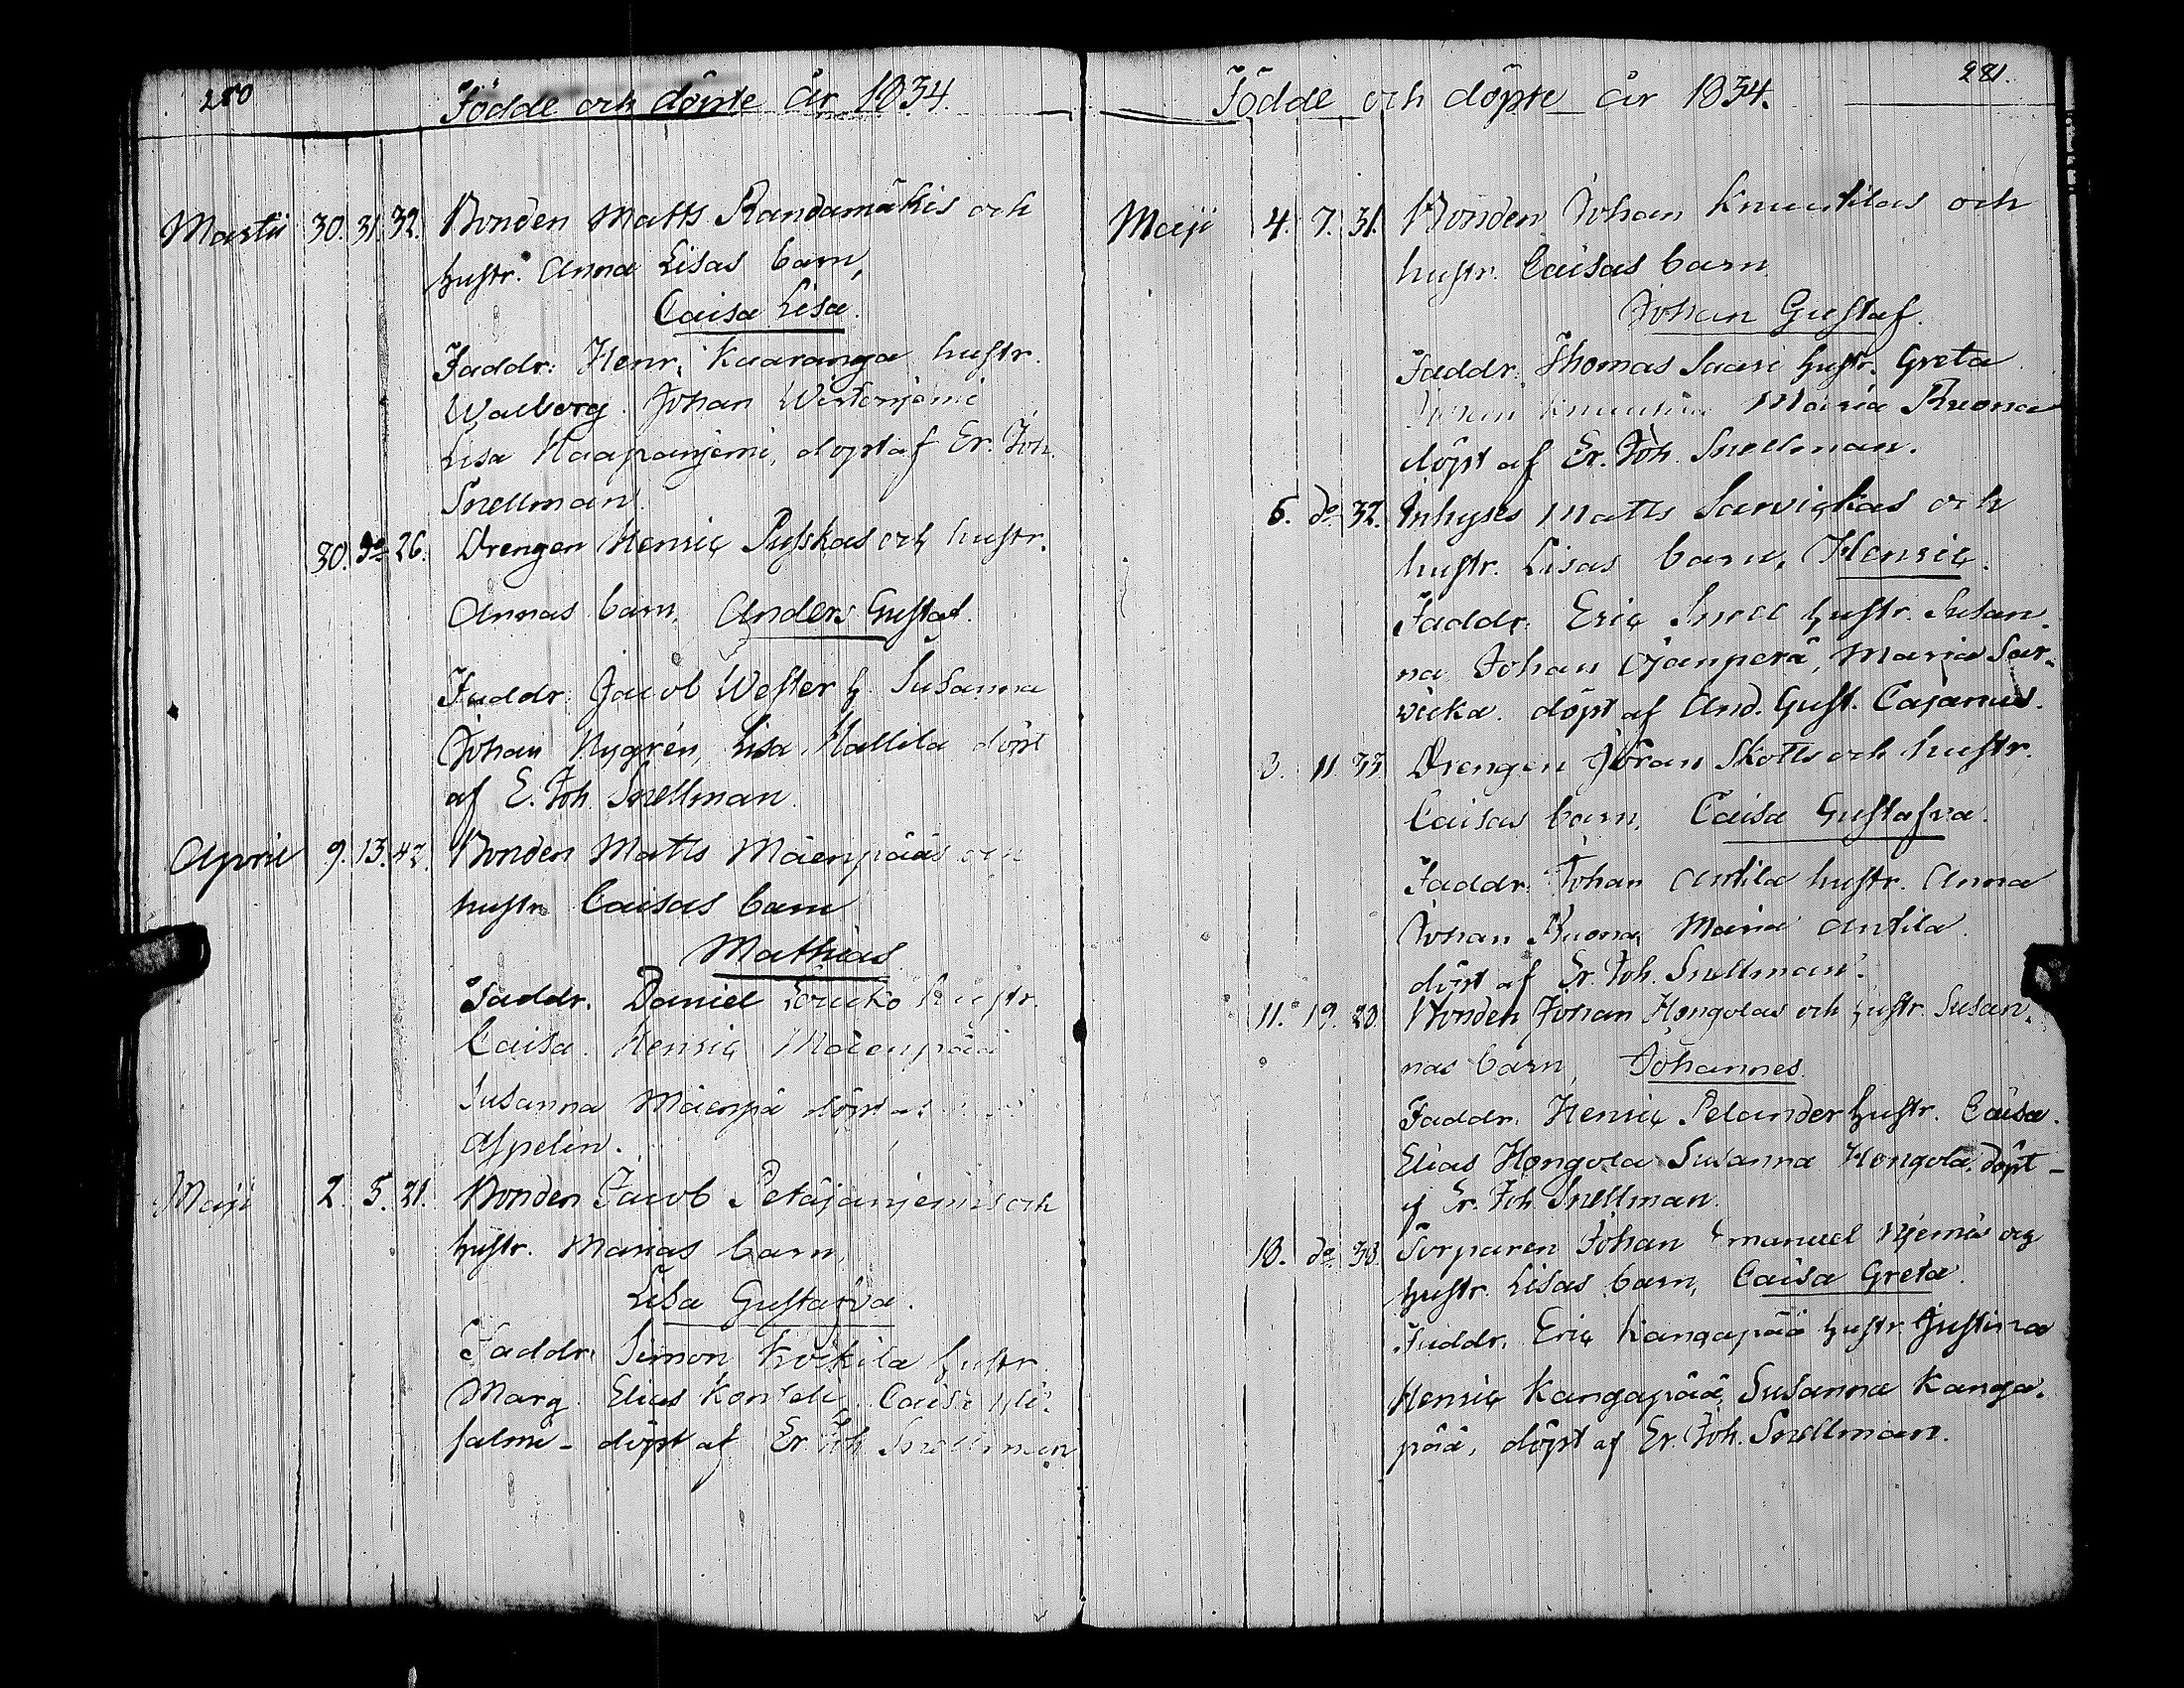 280
Födde och döpte år 1834.
Martii 30. 31. 32. Bonden Matts Randamäkis och
hustr. Anna Lisas barn,
Caisa Lisa.
Faddr. Henr. Kaaranga hustr.
Walborg. Johan
Lisa Haapaniemi, döpt af Er. Joh.
Snellman.
30. do 26. Drengen Henric Pusskas och hustr.
Annas barn, Anders Gustaf.
Faddr: Jacob Wester h. Susanna
Johan Nygrén, Lisa Mattila döpt
af E. Joh. Snellman.
April 9. 13. 42. Bonden Matts Mäenpääs och
hustr. Caisas barn
Mathias
Faddr. Daniel Louko hustr.
Caisa. Henric Mäenpää
Susanna Mäenpä döpt af
Aspelin.
Maji 2. 5. 21. Bonden Jacob Petäjäniemis och
hustr. Marias barn,
Lisa Gustafva.
Faddr. Simon Koskila hustr.
Marg. Elias Konteli, Caisa Yli-
salmi - döpt af Er. Joh. Snellman
281.
Födde och döpte år 1834.
Maji 4. 7. 31. Bonden Johan Knuutilas och
hustr. Caisas barn
Johan Gustaf.
Faddr. Thomas Saari hustr. Greta
Johan Knuutila Maria Ruona
döpt af Er. Joh. Snellman.
6. do 32. Inhyses Matts Sarvickas och
hustr. Lisas barn, Henric.
Faddr. Eric Snell hustr. Susan-
na Johan Ojanperä, Maria Sar-
vicka. döpt af And. Gust. Cajanus.
8. 11. 33 Drengen Göran Skotts och hustr.
Caisas barn, Caisa Gustafva.
Faddr. Johan Antila hustr. Anna
Johan Ruona, Maria Antila.
döpt af Er. Joh. Snellman.
11. 19. 28. Bonden Johan Hongolas och hustr. Susan-
nas barn, Johannes.
Faddr. Henric Pelander hustr. Caisa.
Elias Hongola Susanna Hongola. döpt -
af Er. Joh Snellman.
18. do 38. Torparen Johan Emanuel Njemis och
hustr. Lisas barn, Caisa Greta.
Faddr. Eric Kangapää hustr. Justina
Henric Kangapää, Susanna Kanga-
pää, döpt af Er. Joh. Snellman.